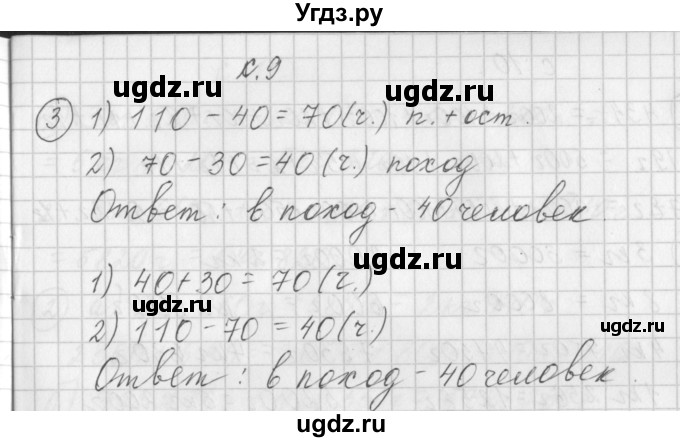 Угдз.ру
с. 9
ugdz.ru ugdz.ru
3 1) 110 - 40 = 70 (ч.) п. + ост.
ugdz.ru
2) 70 - 30 = 40 (ч.) поход
ugdz.ru
Ответ: в поход - 40 человек.
ugdz.ru
1) 40 + 30 = 70 (ч.)
ugdz.ru ugdz.ru
2) 110 - 70 = 40 (ч.)
ugdz.ru
Ответ: в поход - 40 человек.
ugdz.ru